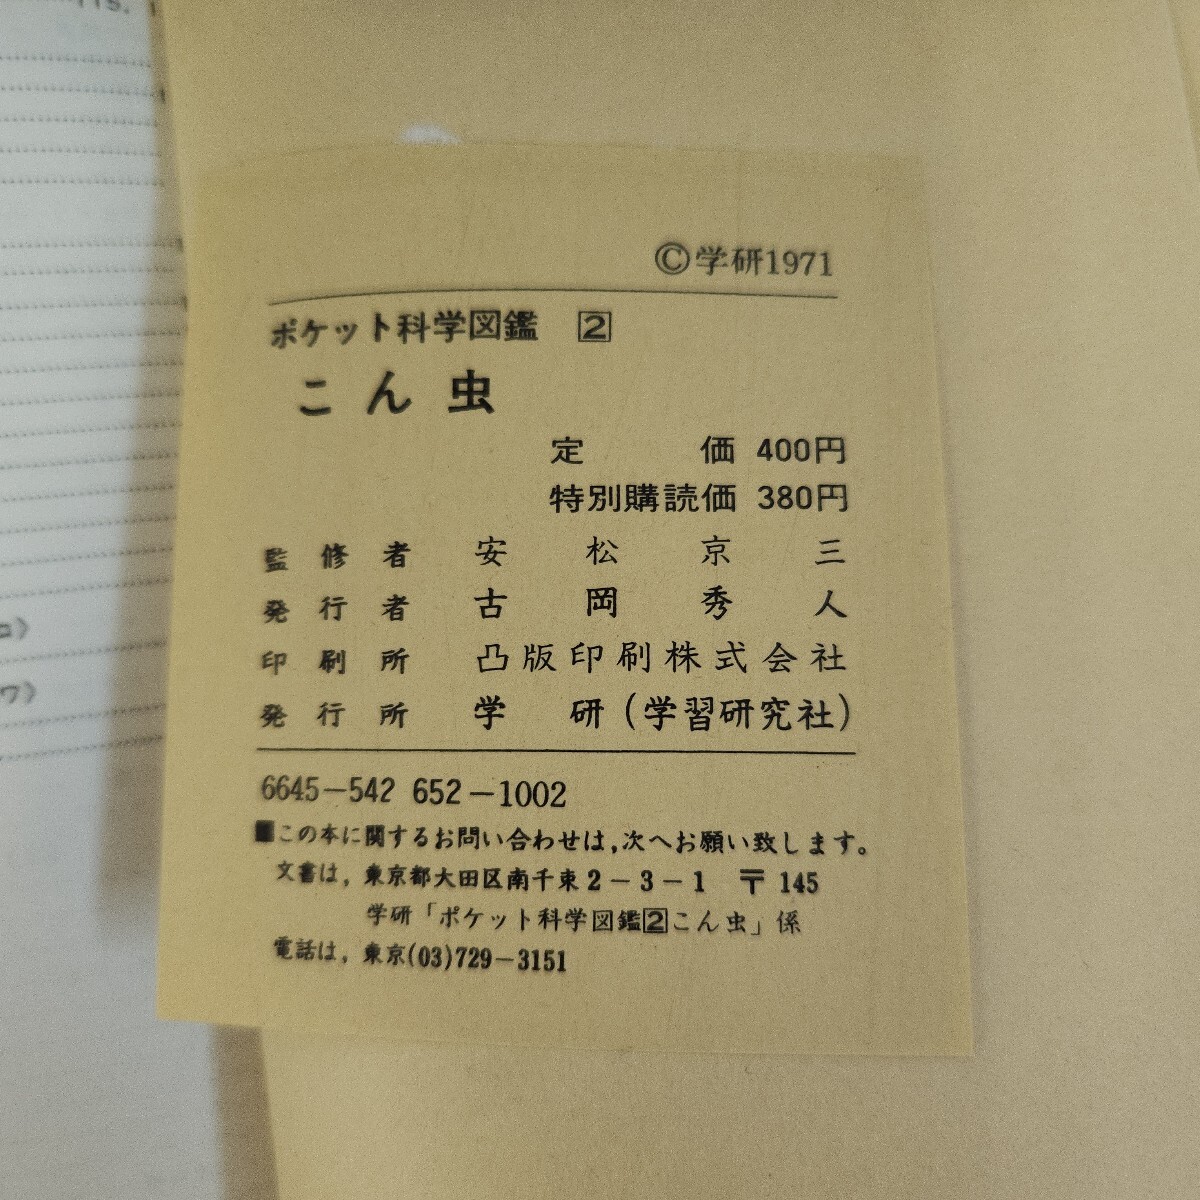 ©学研1971
ポケット科学図鑑 2
こん虫
定価 400円
特別購読価 380円
監修者 安松京三
発行者 古岡秀人
印刷所 凸版印刷株式会社
発行所 学研(学習研究社)
6645-542 652-1002
■この本に関するお問い合わせは,次へお願い致します。
文書は,東京都大田区南千束2-3-1 〒145
学研「ポケット科学図鑑2こん虫」係
電話は,東京(03)729-3151